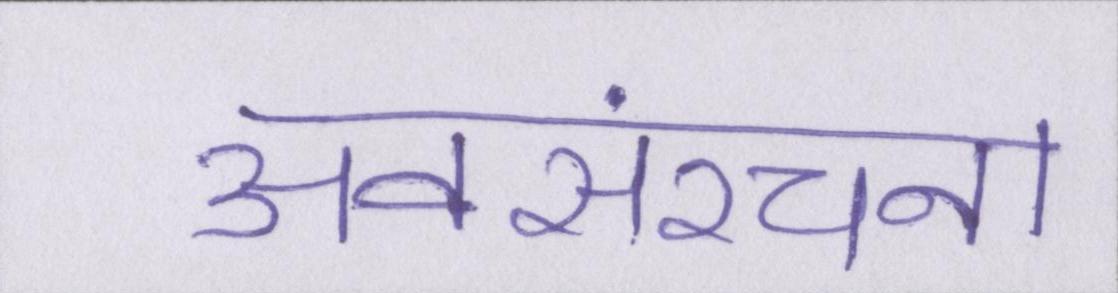 अवसंरचना